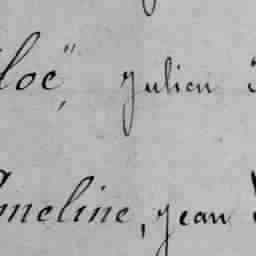 loë", Julien
meline, Jean